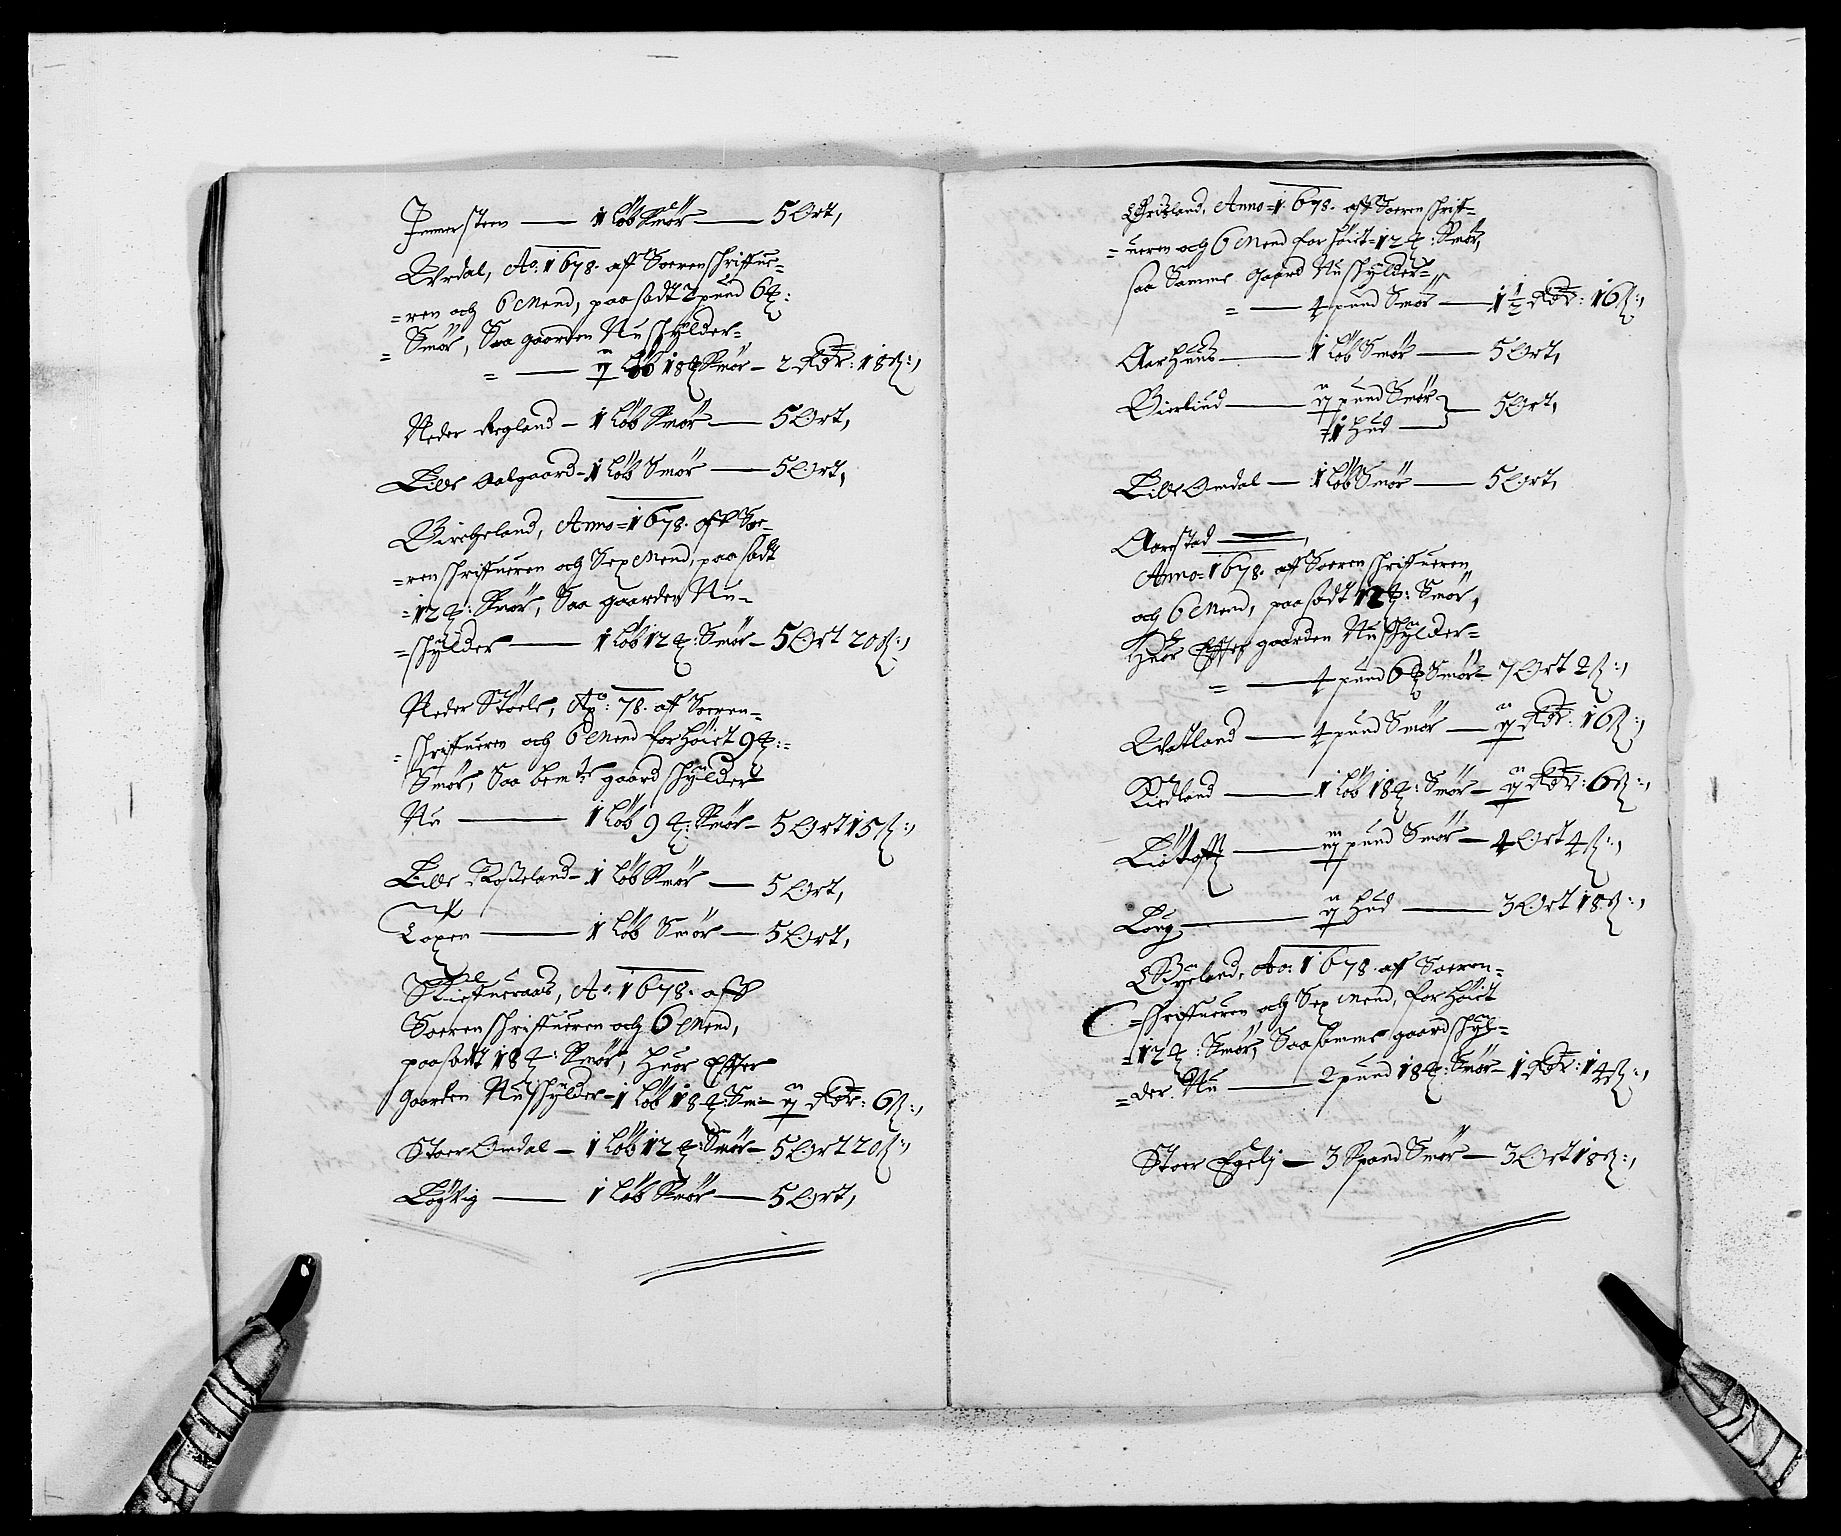 Immersteen — 1 Løb Smør — 5 Ort,
Ørdal, Ao: 1678. aff Soerenschriffue-
=ren och 6 Mend, paasadt 2 pund 6 ℔:
= Smør, Saa gaarden Nu schylder-
= — ij Løb 18 ℔ Smør — 2 Rdr: 18 ß:,
Neder Regland — 1 Løb Smør — 5 Ort,
Lille Aalgaard — 1 Løb Smør — 5 Ort,
Bircheland, Anno=1678. aff Soe-
=renschriffueren och Sex Mend, paasadt
=12 ℔: Smør, Saa gaarden Nu-
=schylder — 1 Løb 12 ℔: Smør — 5 Ort 20 ß:,
Neder Støele, Ao: 78. aff Soeren-
=schriffueren och 6 Mend forhøiet 9 ℔:-
Smør, Saa bemte gaard schylder
Nu — 1 Løb 9 ℔: Smør — 5 Ort 15 ß:,
Lille Rosseland — 1 Løb Smør — 5 Ort,
Laxen — 1 Løb Smør — 5 Ort,
Ao: 1678. aff
Soerenschriffueren och 6 Mend,
paasadt 18 ℔: Smør, huor Effter
gaarden Nu schylder — 1 Løb 18 ℔: Sm — ij Rdr: 6 ß:,
Stoer Omdal — 1 Løb 12 ℔: Smør — 5 Ort 20 ß:,
Løyvig — 1 Løb Smør — 5 Ort,
Anno=1678. aff Soerenschriff-
=ueren och 6 Mend forhøiet=12 ℔: Smør,
saa Samme gaard Nu schylder=
= — 4 pund Smør — 1 1/2 Rdr: 16 ß:,
Aarhuus — 1 Løb Smør — 5 Ort,
Bierliud — ij pund Smør
1 Hud — 5 Ort,
Lille Omdal — 1 Løb Smør — 5 Ort,
Aarstad —
Anno=1678. aff Soerenschriffueren
och 6 Mend, paasadt 12 ℔: Smør,
Huor Effter gaarden Nu schylder=
= — 4 pund 6 ℔ Smør — 7 Ort 2 ß:,
Watland — 4 pund Smør — ij Rdr: 16 ß:,
Kiedland — 1 Løb 18 ℔: Smør — ij Rdr: 6 ß:,
— iij pund Smør — 4 Ort 4 ß:,
Løug — ij Hud — 3 Ort 18 ß:,
Ao: 1678. aff Soeren=
=schriffueren och Sex Mend, forhøiet
=12 ℔: Smør, Saa samme gaard schyl=
=der Nu — 2 pund 18 ℔: Smør — 1 Rdr: 14 ß:,
Stoer Egeli — 3 Spand Smør — 3 Ort 18 ß:,